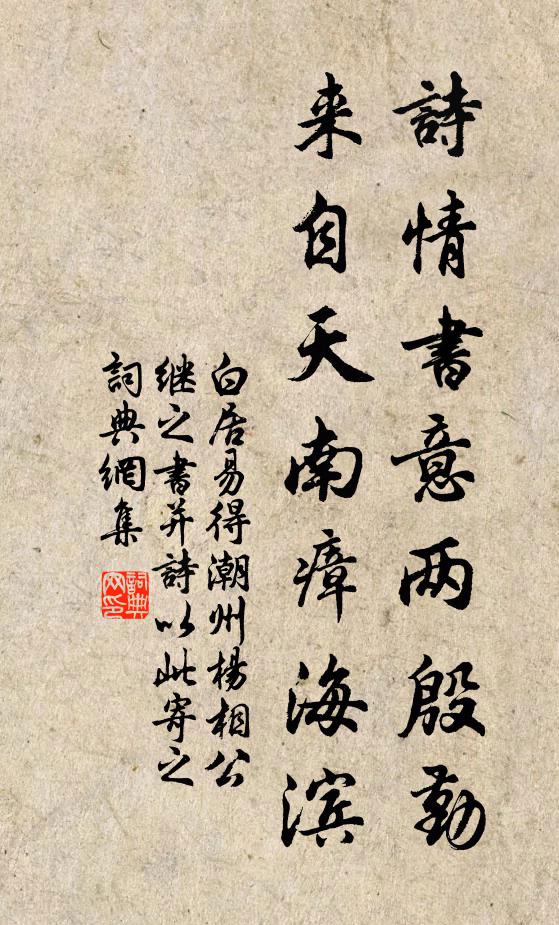 詩情書意两殷勤
来自天南瘴海滨
白居易得潮州楊相公
继之書并詩以此寄之
詞典網集
詞典网印